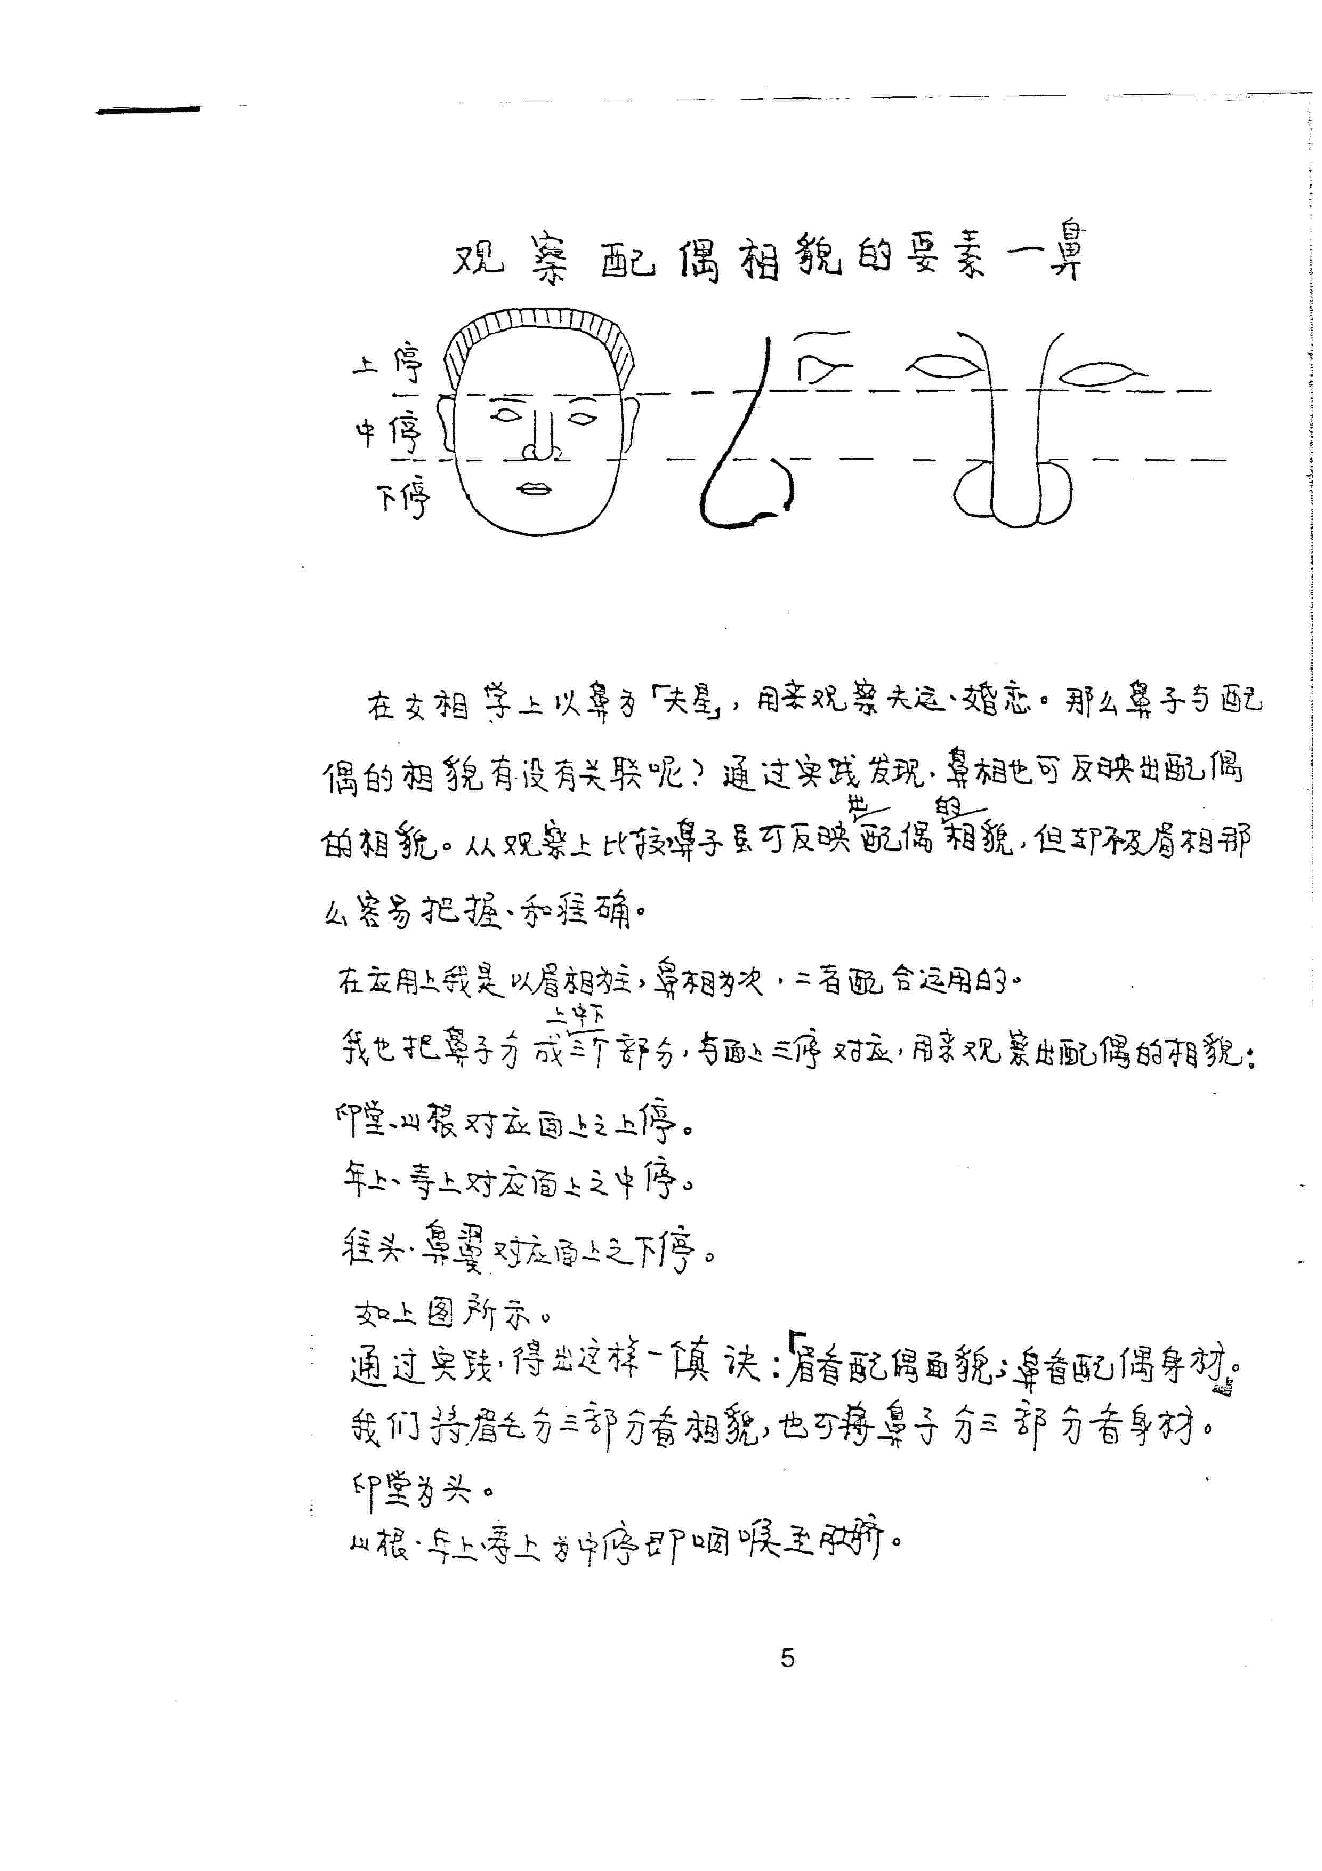 观察配偶相貌的要素一鼻
上停
中停
下停
在女相学上以鼻为「夫星」，用来观察夫运、婚恋。那么鼻子与配
偶的相貌有没有关联呢？通过实践发现、鼻相也可反映出配偶
的相貌。从观察上比较鼻子虽可反映出配偶的相貌，但却不及眉相那
么容易把握、和准确。
在应用上我是以眉相为主，鼻相为次，二者配合运用的。
我也把鼻子分成上中下三个部分，与面上三停对应，用来观察出配偶的相貌：
印堂、山根对应面上之上停。
年上、寿上对应面上之中停。
准头、鼻翼对应面上之下停。
如上图所示。
通过实践，得出这样一个真诀：「眉看配偶面貌；鼻看配偶身材。」
我们将眉毛分三部分看相貌，也可将鼻子分三部分看身材。
印堂为头。
山根、年上、寿上为中停即咽喉至肚脐。
5